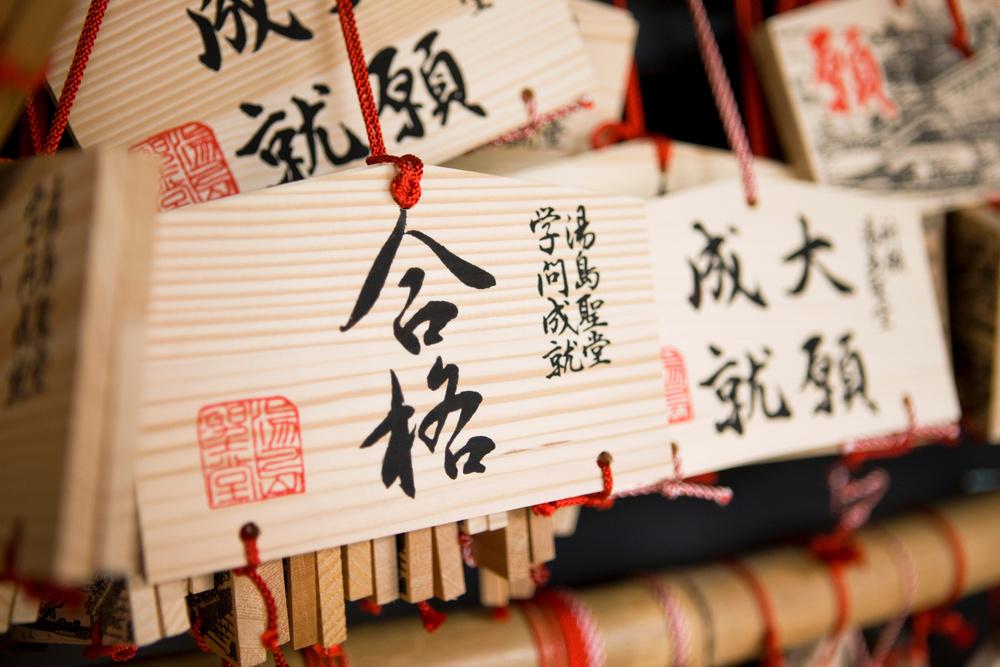 願
成就
合格
湯島聖堂
学問成就
湯島
聖堂
大願
成就
願